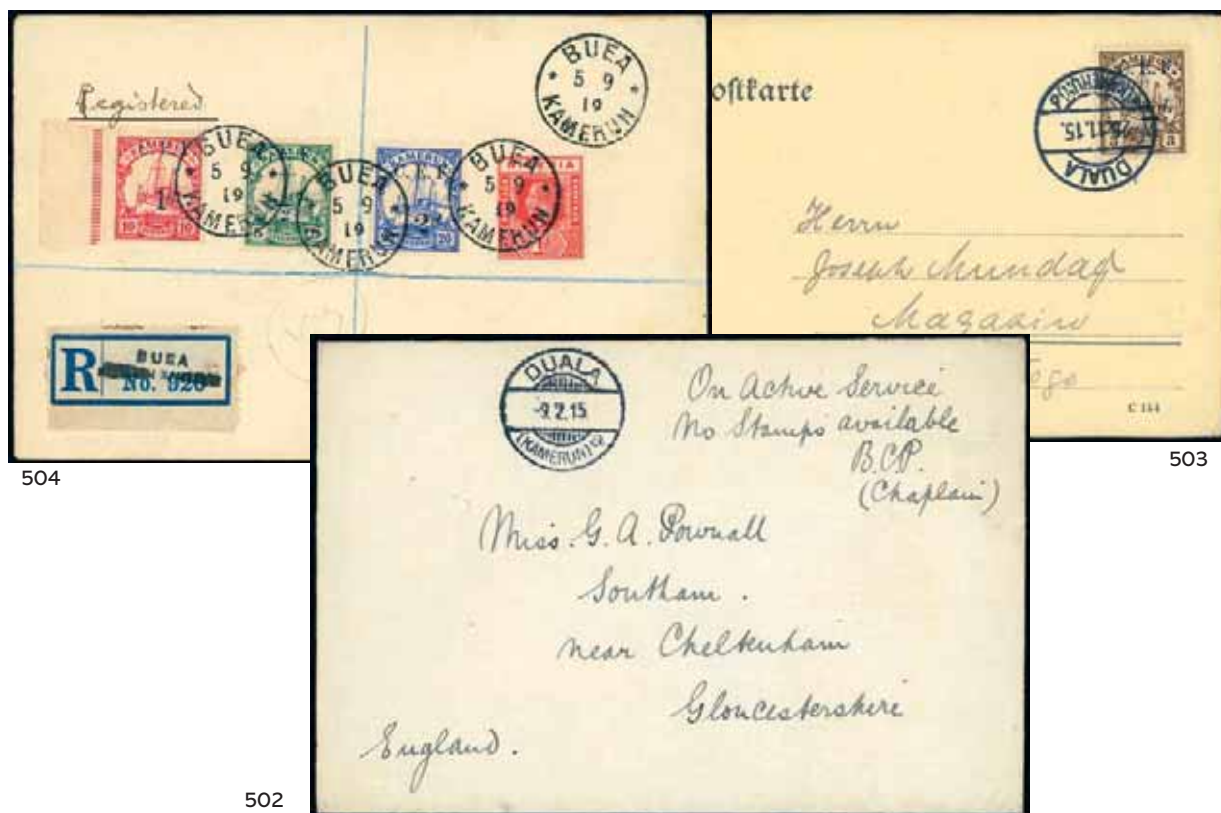 Registered
BUEA
5 9
19
KAMERUN
KAMERUN
10 10
1
BUEA
5 9
19
KAMERUN
BUEA
5 9
19
KAMERUN
KAMERUN
20
BUEA
5 9
19
KAMERUN
R
BUEA
No. 926
504
ostkarte
DUALA
25.11.15.
Herrn
Joseph
Magazin
Togo
C 154
503
DUALA
-9.2.15
(KAMERUN)
On Active Service
No Stamps available
B.C.P.
(Chaplain)
Miss. G. A. Pownall
Southam.
near Cheltenham
Gloucestershire
England.
502